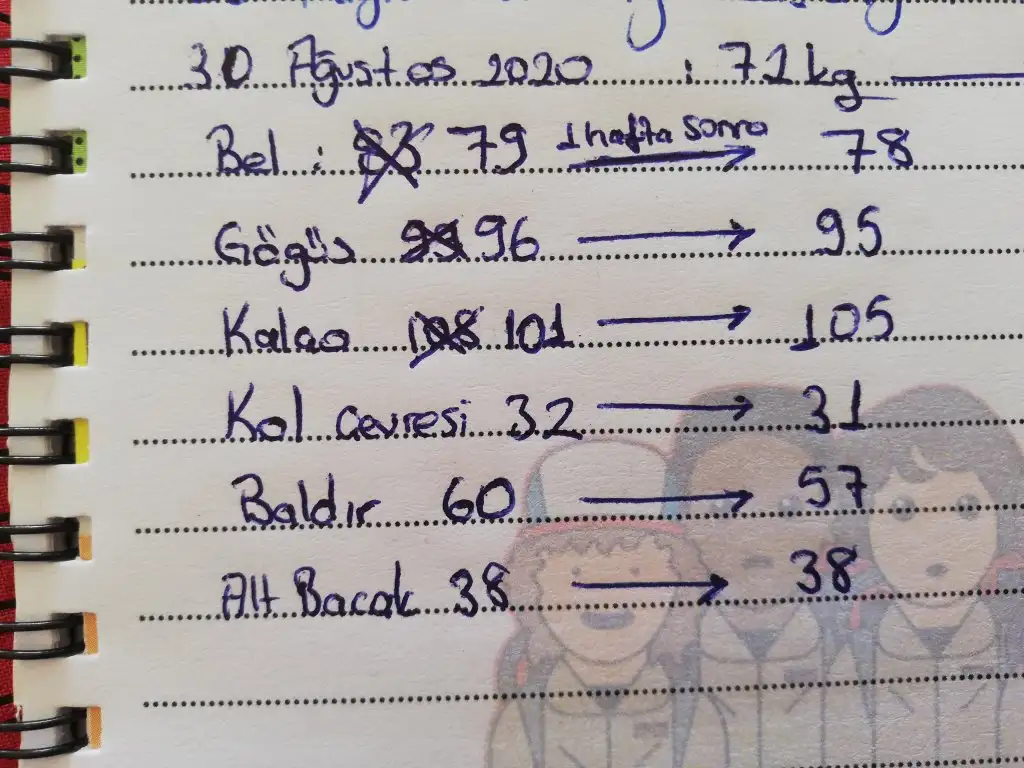 30 Ağustos 2020 : 71 kg
Bel : 79 1 hafta sonra → 78
Göğüs 99 96 → 95
Kalça 108 101 → 105
Kol çevresi 32 → 31
Baldır 60 → 57
Alt Bacak 38 → 38